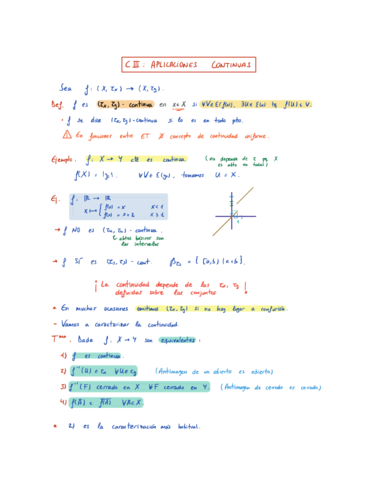 C III : APLICACIONES CONTINUAS
Sea f: (X, τx) → (X, τy).
Def. f es (τx, τy) - continua en x∈X si ∀V∈E(f(x)), ∃U∈E(x) tq f(U) ⊂ V.
· f se dice (τx, τy)-continua si lo es en todo pto.
⚠ En funciones entre ET ∄ concepto de continuidad uniforme.
Ejemplo. f: X → Y cte es continua. (no depende de τ pq X es abto en todas)
f(X) = {y0}. ∀V∈E(y0), tomamos U = X.
Ej. f: ℝ → ℝ
x ↦ { f(x) = x x<1
f(x) = x+2 x≥1
→ f NO es (τu, τu) - continua.
τ abtos básicos son los intervalos
→ f SÍ es (τs, τs) - cont. βτs = { [a,b) | a<b }.
¡ La continuidad depende de las τx, τy definidas sobre los conjuntos. !
• En muchas ocasiones omitimos (τx, τy) si no hay lugar a confusión.
- Vamos a caracterizar la continuidad.
Tma. Dada f: X → Y son equivalentes:
1) f es continua.
2) f⁻¹(U) ∈ τx ∀U∈τy (Antiimagen de un abierto es abierto)
3) f⁻¹(F) cerrado en X ∀F cerrado en Y (Antiimagen de cerrado es cerrado)
4) f(Ā) ⊂ f(A)‾ ∀A⊂X.
• 2) es la caracterización más habitual.